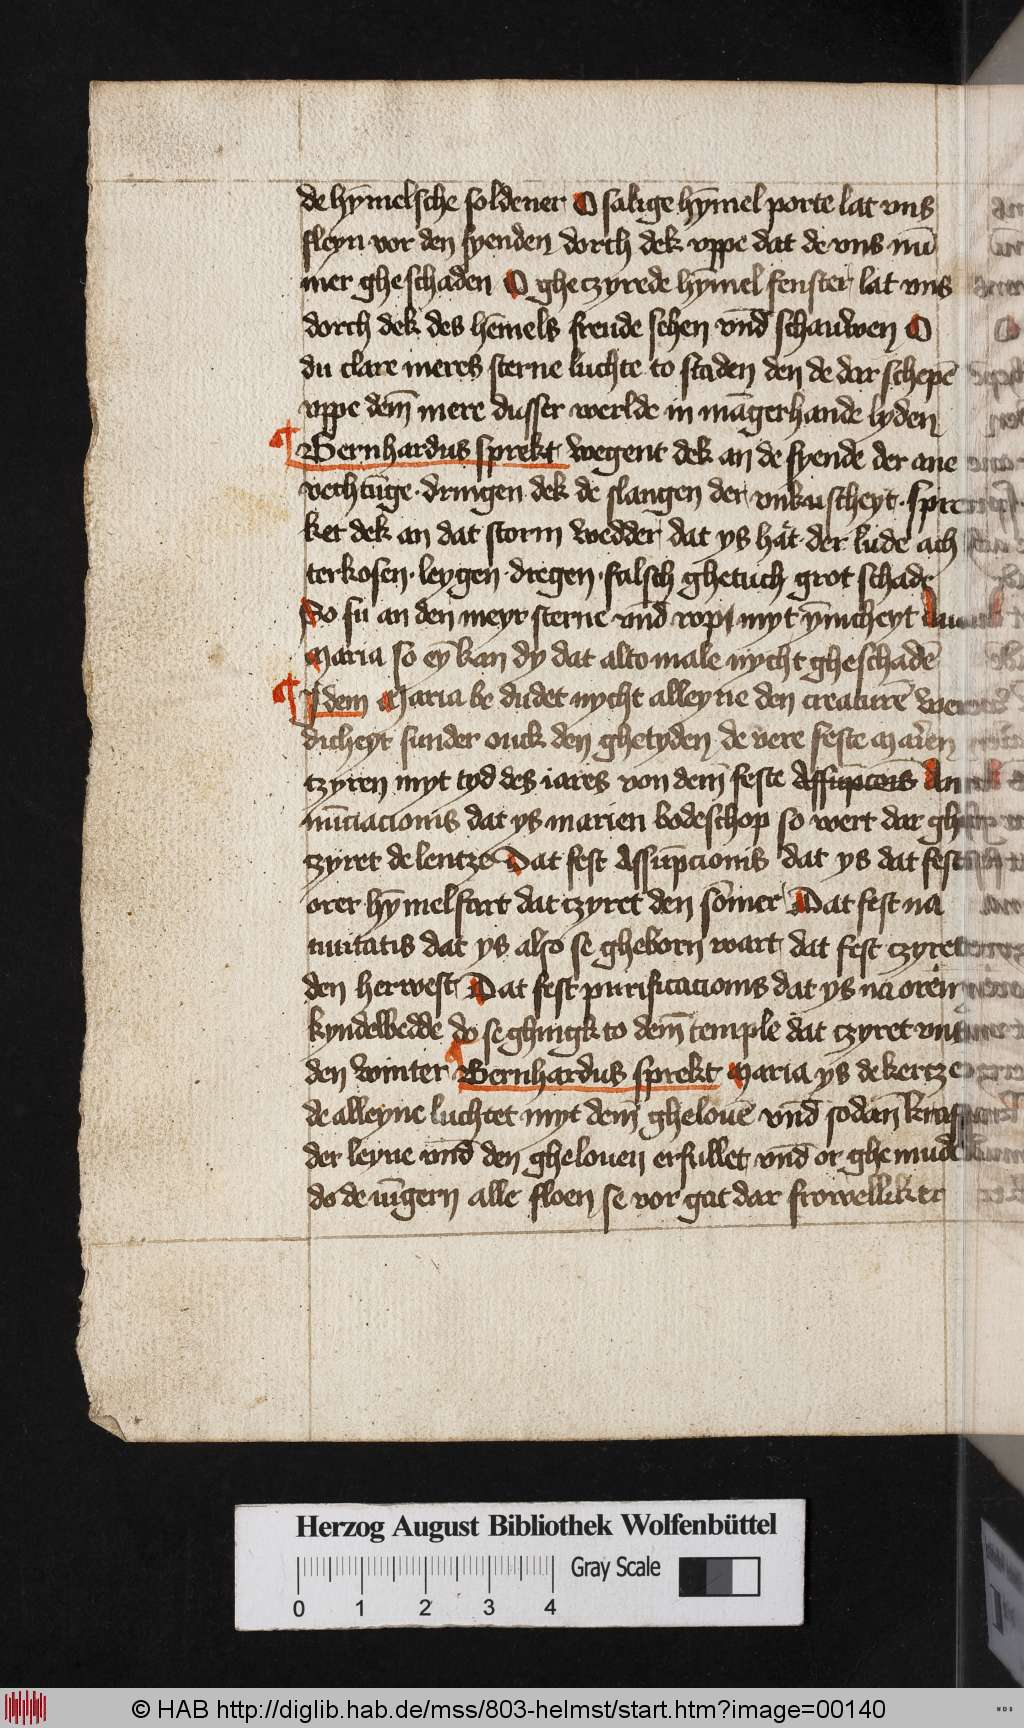 de hȳmelsche soldener O salige hȳmel porte lat vns
fleyn vor den fyenden dorch dek vppe dat de vns nū
mer gheschaden O gheczyrede hȳmel fenster lat vns
dorch dek des hēmels freude sehen vnd̄ schauwen O
du clare meres sterne luchte to staden den de dar schepē
vppe dem̄ mere dusser werlde in māgerhande lyden
¶ Bernhardus sprekt wegent dek an de fyende der ane
vechtūge · dringen dek de slangen der vnkuscheyt · spre
ket dek an dat storm wedder dat ys hāt · der lude ach
terkosen · leygen · dregen · falsch ghetuch grot schade
So su an den meyr sterne vnd̄ rop myt ȳnicheyt
Maria so eȳ kan dy dat altomale nycht gheschadē
¶ Idem Maria be dudet nycht alleyne den creaturē
dicheyt sunder ouck den ghetyden de vere feste
czyren myt tyd des iares von dem̄ feste An
nūciacionis dat ys marien bodeschop so wert dar ghe
czyret de lentze Dat fest Assūpcionis dat ys dat fest
orer hȳmelfart dat czyret den som̄er Dat fest na
tiuitatis dat ys also se gheborn wart dat fest czyret
den herwest Dat fest purificacionis dat ys na oren
kyndelbedde do se ghingk to dem̄ temple dat czyret vns
den winter Bernhardus sprekt Maria ys de kercze
de alleyne luchtet myt dem̄ ghelouē vnd̄ sodan̄
der leyne vnd̄ den ghelouen erfullet vnd̄ or ghemude
do de iūgern alle floen se vor gat dar frowelliker
Herzog August Bibliothek Wolfenbüttel
Gray Scale
0 1 2 3 4
© HAB http://diglib.hab.de/mss/803-helmst/start.htm?image=00140